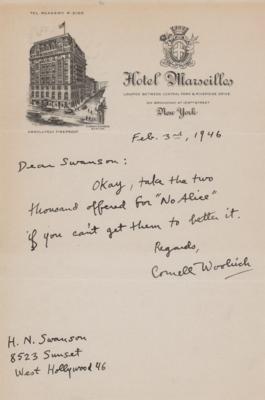 TEL. ACADEMY 2-2100
Hotel Marseilles
LOCATED BETWEEN CENTRAL PARK & RIVERSIDE DRIVE
ON BROADWAY AT 103RD STREET
New York
ABSOLUTELY FIREPROOF
Feb. 3rd, 1946
Dear Swanson:
Okay, take the two
thousand offered for "No Alice"
if you can't get them to better it.
Regards,
Cornell Woolrich
H. N. Swanson
8523 Sunset
West Hollywood 46